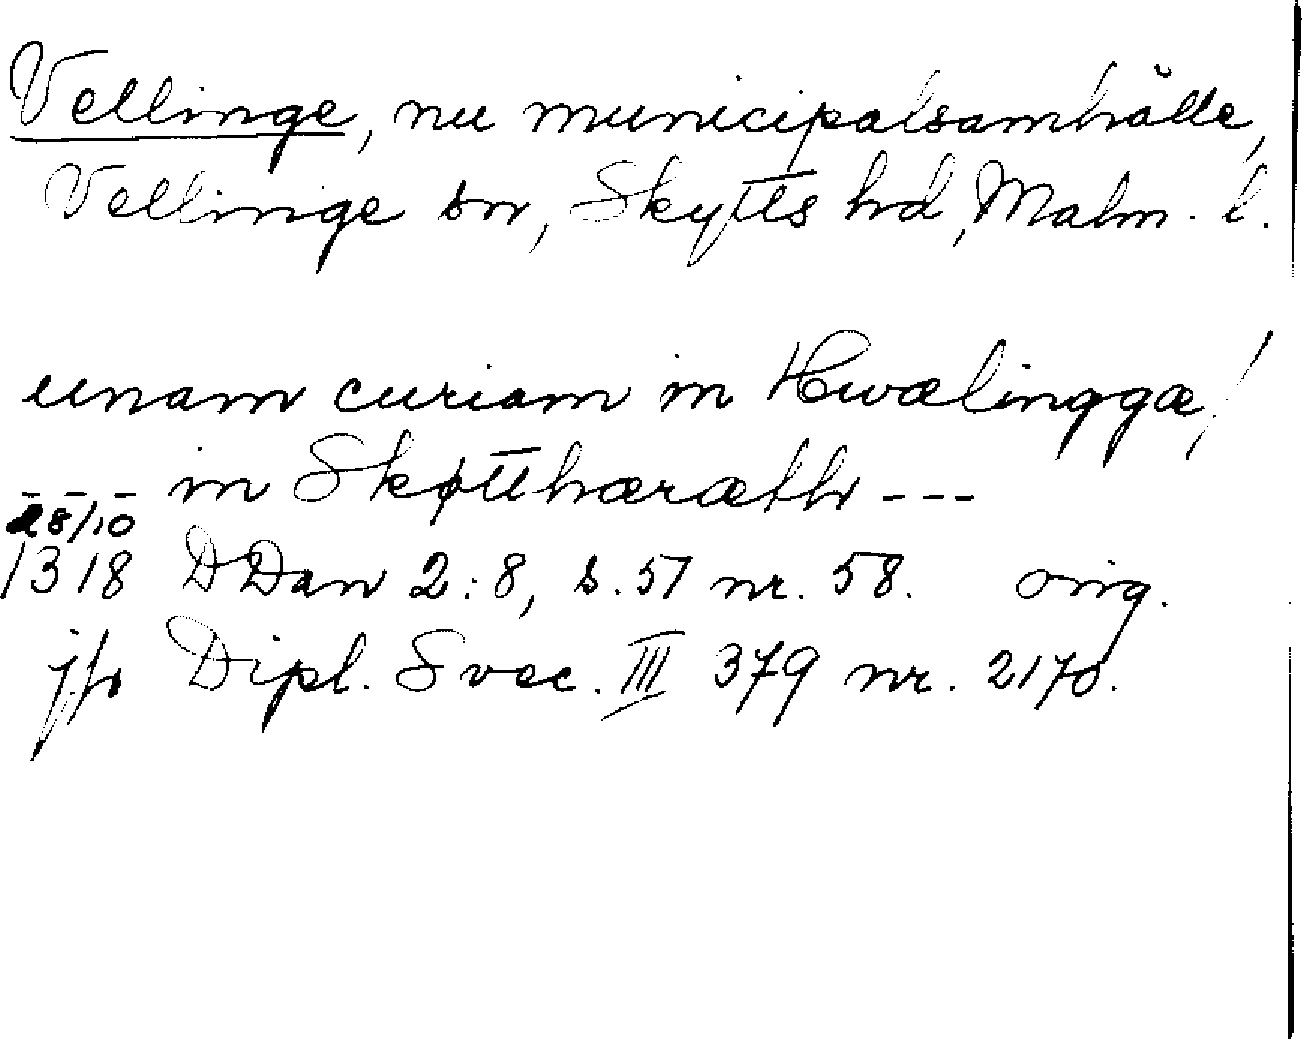 Vellinge, nu municipalsamhälle,
Vellinge sn, Skytts hd, Malm. l.
unam curiam in Hwælinggæ,!
--- in Skøtthæræth ---
28/10
1318 DDan 2:8, s. 57 nr. 58. orig.
jfr Dipl. Svec. III 379 nr. 2170.